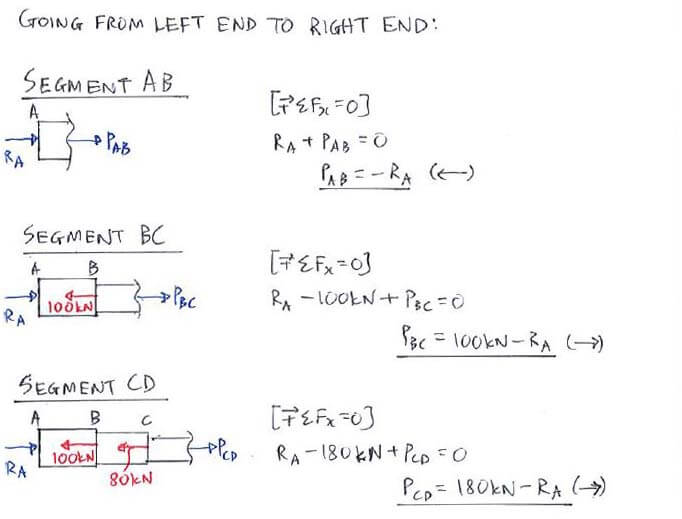 GOING FROM LEFT END TO RIGHT END:
SEGMENT AB
A
R_A
P_AB
[→+ ΣFx=0]
R_A + P_AB = 0
P_AB = -R_A (←)
SEGMENT BC
A B
100kN
R_A
P_BC
[→+ ΣFx=0]
R_A - 100kN + P_BC = 0
P_BC = 100kN - R_A (→)
SEGMENT CD
A B C
100kN
R_A
80kN
P_CD
[→+ ΣFx=0]
R_A - 180kN + P_CD = 0
P_CD = 180kN - R_A (→)